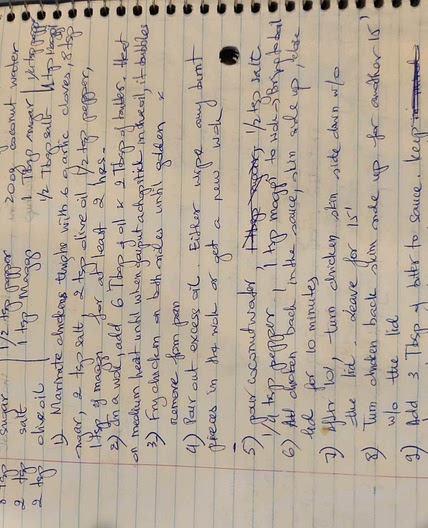 3 tsp sugar 1/2 tsp pepper 200g coconut water
2 tsp salt 1 tsp Maggi 1 Tbsp sugar 1/4 tsp pepper
2 tsp olive oil 1/2 Tbsp salt 1 tsp Maggi
1) Marinate chicken thighs with 6 garlic cloves, 3 tsp
sugar, 2 tsp salt 2 tsp olive oil 1/2 tsp pepper,
1 tsp of maggi for at least 2 hrs.
2) In a wok, add 6 Tbsp of oil & 2 Tbsp of butter. Heat
on medium heat until when you put a chopstick in the oil, it bubbles
3) Fry chicken on both sides until golden &
remove from pan
4) Pour out excess oil. Either wipe any burnt
pieces in the wok or get a new wok
5) pour coconut water 1/2 tsp salt
1/4 tsp pepper 1 tsp maggi to wok & bring to boil
6) Add chicken back in the sauce, skin side up, close
lid for 10 minutes
7) After 10', turn chicken, skin side down w/o
the lid. Leave for 15'
8) Turn chicken back skin side up for another 15'
w/o the lid
9) Add 3 Tbsp of butter to sauce. Keep